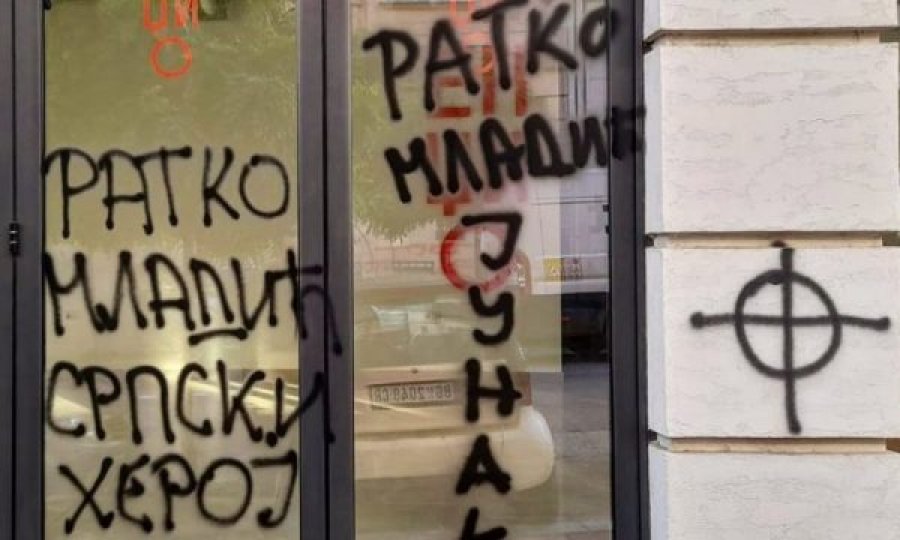 РАТКО
МЛАДИЋ
СРПСКИ
ХЕРОЈ
РАТКО
МЛАДИЋ
ЈУНАК